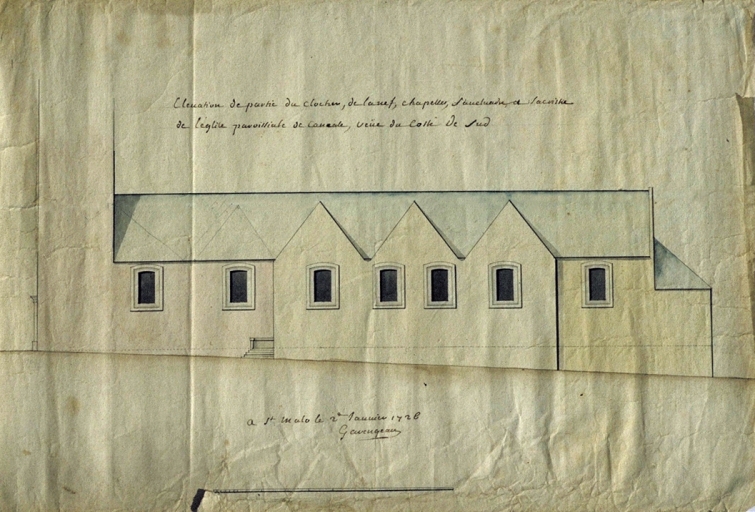 Elevation de partie du clocher, de la nef, chapelles, Sanctuaire et Sacristie
de l'eglise parroissialle de Cancale, veüe du Costé De Sud
A St. Malo le 2e Januier 1726
Garengeau